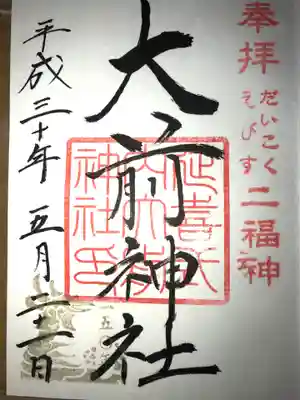 奉拝
だいこく
えびす
二福神
大前神社
延喜式
内大前
神社印
平成三十年五月二十一日